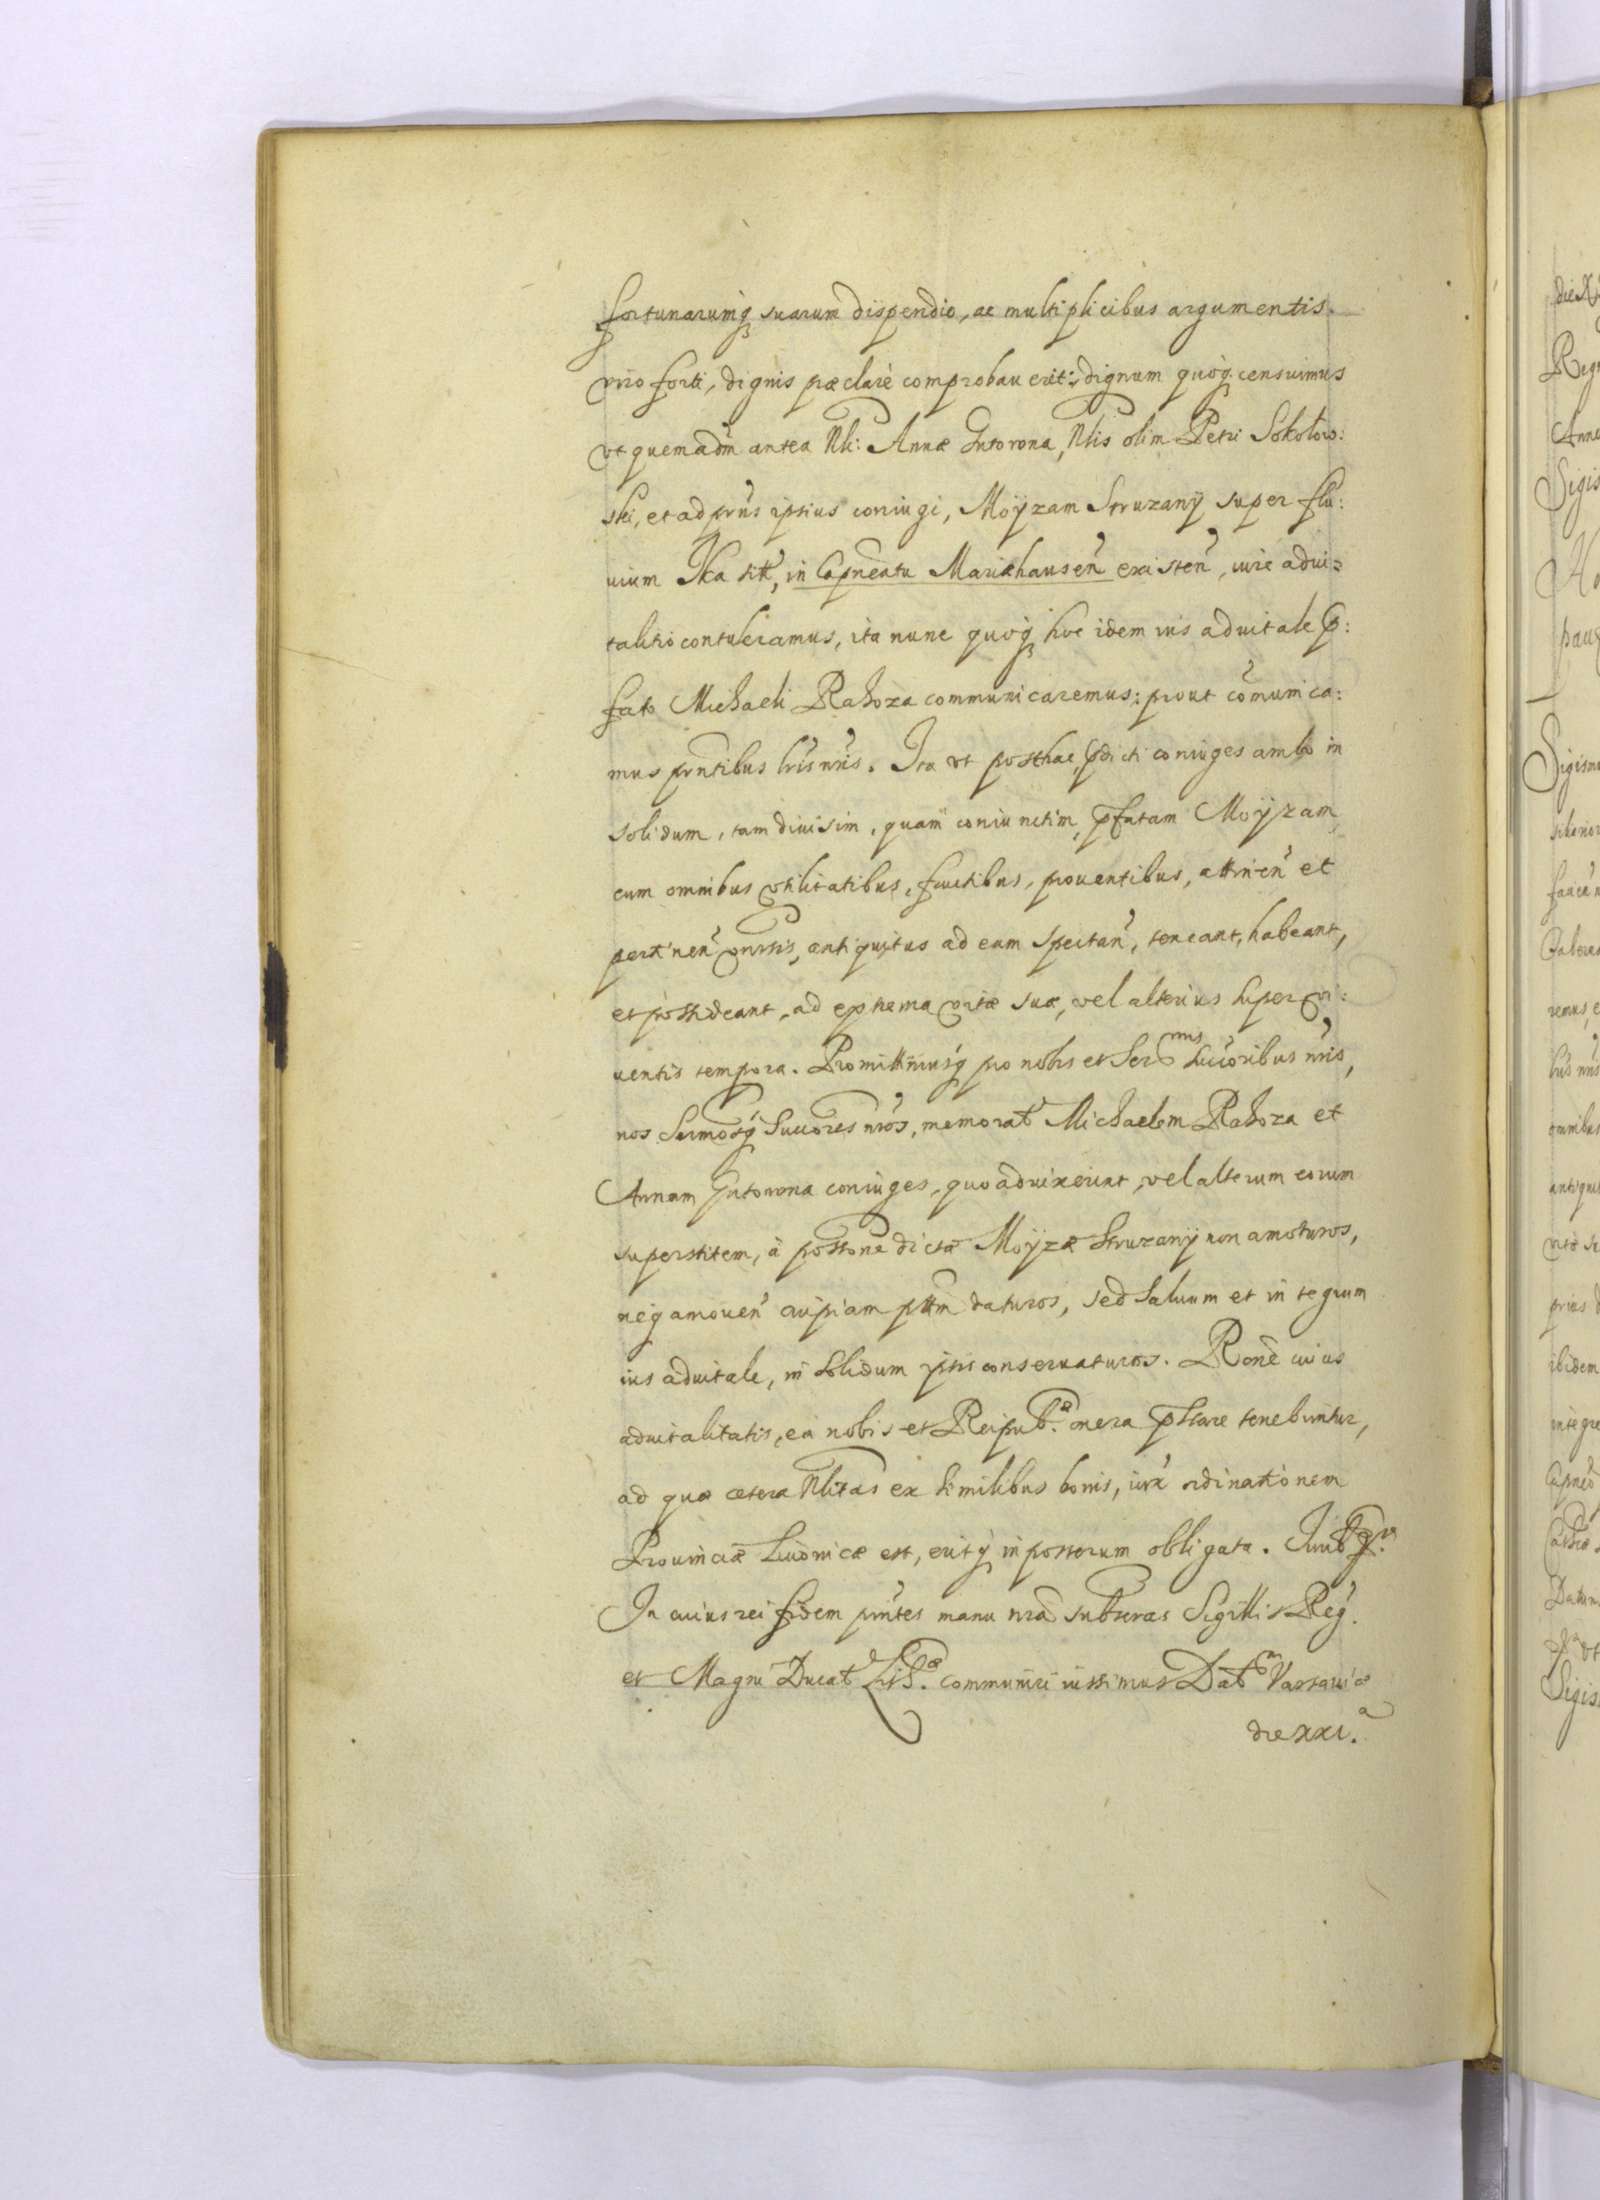 fortunarumq suarum dispendio, ac multiplicibus argumentis
viro forti, dignis præclare comprobaverit: dignum quoq censuimus
vt quemadm antea Nli: Annæ Gutorona, Nlis olim Petri Sokolow:
ski, et ad prns ipsius coniugi, Moyzam Struzany super flu:
uium Ika sit, in Capneatu Mariæhausen existen, iure adui:
talitio contuleramus, ita nunc quoq hoc idem ius aduitale p:
fato Michaeli Rahoza communicaremus: prout comunica:
mus prntibus lris nris. Ita vt posthac, pdicti coniuges ambo in
solidum, tam diuisim, quam coniunctim, pfatam Moyzam,
cum omnibus vtilitatibus, fructibus, prouentibus, attinen et
pertinen vnrsis, antiquitus ad eam spectan, teneant, habeant,
et possideant, ad extrema vitæ suæ, vel alterius super vi:
uentis tempora. Promittimusq pro nobis et Ser mis Succoribus nris,
nos Sermosq Succores nros, memorat Michaelem Rahoza et
Annam Gutorona coniuges, quoad vixerint, vel alterum eorum
superstitem, à possone dictæ Moyzæ Struzany non amoturos,
neq amouen cuipiam pttm daturos, sed saluum et integrum
ius aduitale, in solidum ipsis conseruaturos. Rone cuius
aduitalitatis, ea nobis et Reipub. onera pstare tenebuntur,
ad quæ cetera Nlitas ex similibus bonis, iuxt ordinationem
Prouinciæ Liuonicæ est, eritq in posterum obligata. Iurib
In cuius rei fidem prntes manu nra subscras Sigillis Reg.
et Magni Ducat Lith. communiri iussimus Dat Varsauiæ
die XXI. a